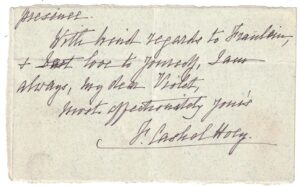 presence.
With kind regards to Fraulein,
& best love to yourself, I am
always, my dear Violet,
most affectionately yours
F. Cashel Hoey